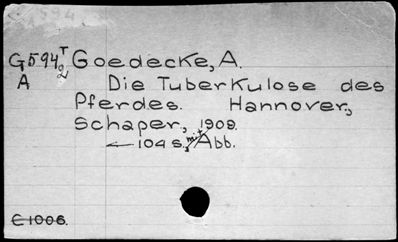 G594 T2 Goedecke, A.
A Die Tuberkulose des
Pferdes. Hannover,
Schaper, 1909.
104 S., mit Abb.
E1006.